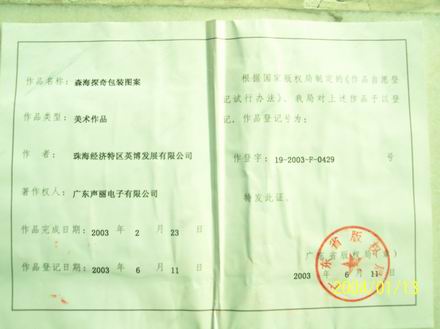 作品名称：森海探奇包装图案
作品类型：美术作品
作 者：珠海经济特区英博发展有限公司
著作权人：广东声丽电子有限公司
作品完成日期：2003 年 2 月 23 日
作品登记日期：2003 年 6 月 11 日
根据国家版权局制定的《作品自愿登
记试行办法》，我局对上述作品予以登
记，作品登记号为：
作登字：19-2003-F-0429 号
特发此证。
广东省版权局(章)
2003 年 6 月 11 日
广东省版权局
2004/01/13